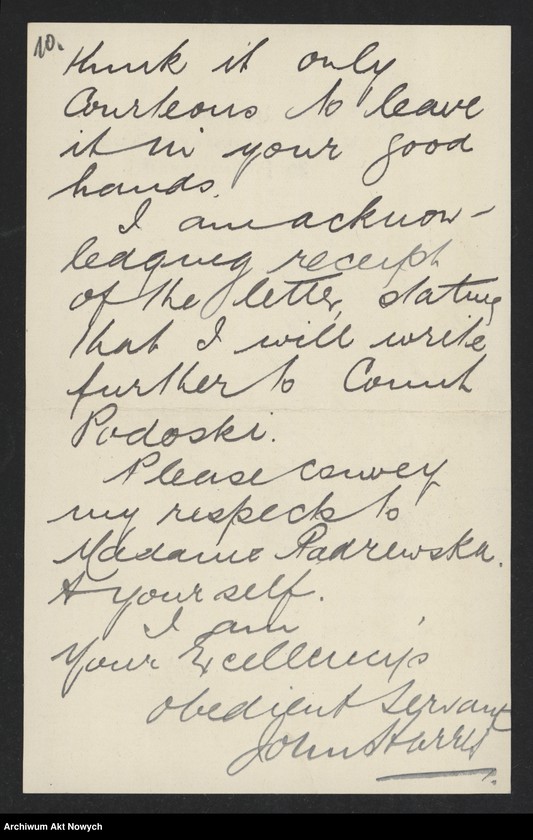 10.
think it only
Courteous to leave
it in your good
hands.
I am acknow-
ledging receipt
of the letter, stating
that I will write
further to Count
Podoski.
Please convey
my respects to
Madame Padrewska.
& yourself.
I am
Your Excellency's
obedient Servant
John Harris
Archiwum Akt Nowych